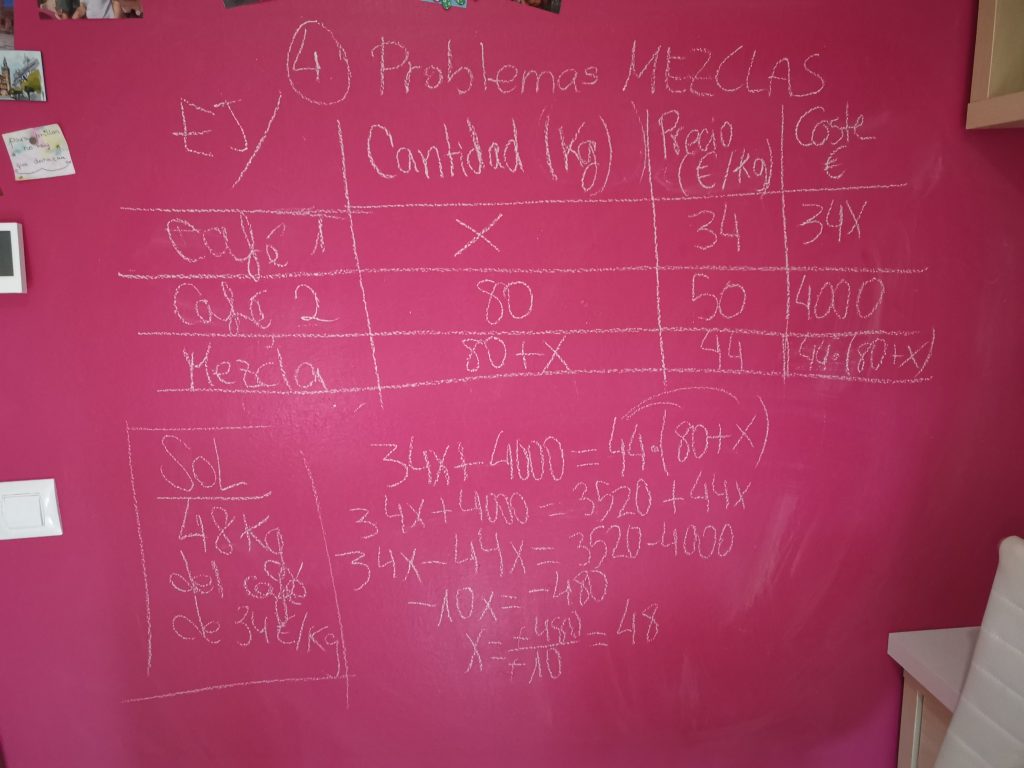 4 Problemas MEZCLAS
EJ/ Cantidad (Kg) Precio (€/Kg) Coste €
Café 1 X 34 34X
Café 2 80 50 4000
Mezcla 80+X 44 44·(80+X)
34x+4000=44·(80+X)
34x+4000=3520+44x
34x-44x=3520-4000
-10x=-480
x=-480/-10=48
SOL
48Kg
del café
de 34€/Kg